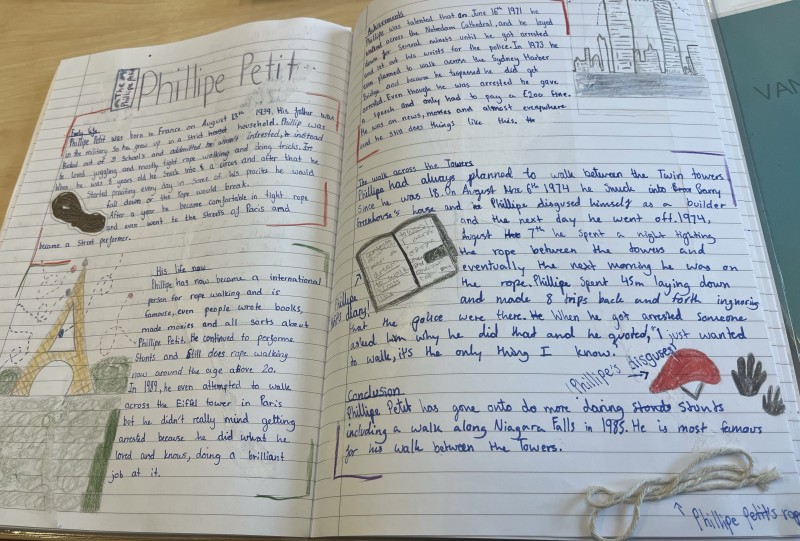 Phillipe Petit
Early life
Phillipe Petit was born in France on August 13th 1949. His father was
in the military so he grew up in a strict household. Phillip was
kicked out of 5 schools and addmitted he wasn't intrested, instead
he loved juggling and mostly tight rope walking and doing tricks. In
When he was 5 years old he snuck into a circus and after that he
Started practing every day in some of his practis he would
fall down or the rope would break.
After a year he became comfortable in tight rope
and even went to the streets of Paris and
became a street performer.
His life now
Phillipe has now become a international
person for rope walking and is
famouse, even people wrote books,
made movies and all sorts about
Phillipe Petit. He continued to performe
Stunts and still does rope walking
now around the age above 20.
In 1989, he even attempted to walk
across the Eiffel tower in Paris
but he didn't really mind getting
arrested because he did what he
loved and knows, doing a brilliant
job at it.
Achievements
Phillipe was talented that on June 16th 1971 he
walked across the Noterdam Cathedral, and he layed
down for several minuets until he got arrested
and set out his wrists for the police. In 1973 he
then planned to walk across the Sydney Harbor
Bridge and because he tresspassed he did get
arrested. Even though he was arrested he gave
a speech and only had to pay a £200 fine.
He was on news, movies and almost everywhere
and he still does things like this.
The walk across the Towers
Phillipe had always planned to walk between the Twin towers
Since he was 18. On August 6th 1974 he snuck into Barry
Greenhouse's house and Phillipe disgused himself as a builder
and the next day he went off. 1974,
August 7th he spent a night tighting
the rope between the towers and
eventually the next morning he was on
the rope. Phillipe spent 45m laying down
and made 8 trips back and forth ingnoring
that the police were there. When he got arrested someone
asked him why he did that and he quoted, "I just wanted
to walk, it's the only thing I know.
Phillipe
Petit's
diary.
Phillipe's disguse
Conclusion
Phillipe Petit has gone onto do more daring stunts
including a walk along Niagara Falls in 1985. He is most famous
for his walk between the Towers.
Phillipe Petit's rope
VAN